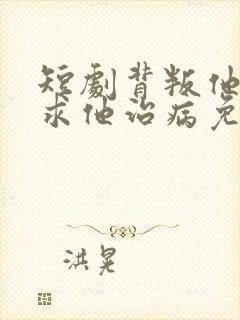 短劇背叛他
求他治病免
洪晃